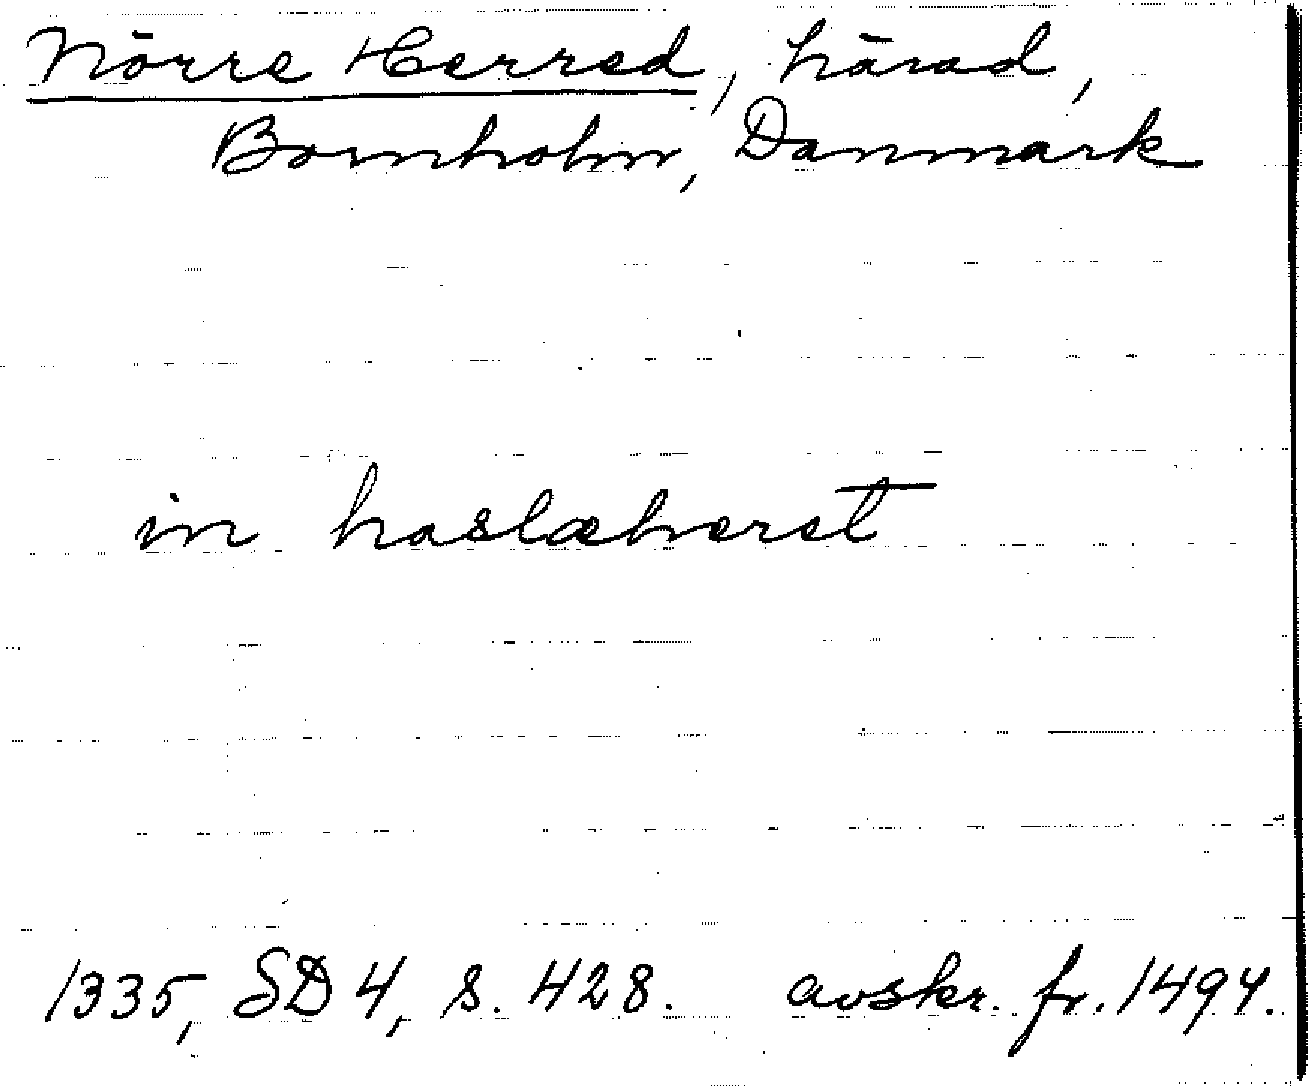 Nörre Herred, härad,
Bornholm, Danmark
in haslæheret
1335, SD 4, s. 428. avskr. fr. 1494.